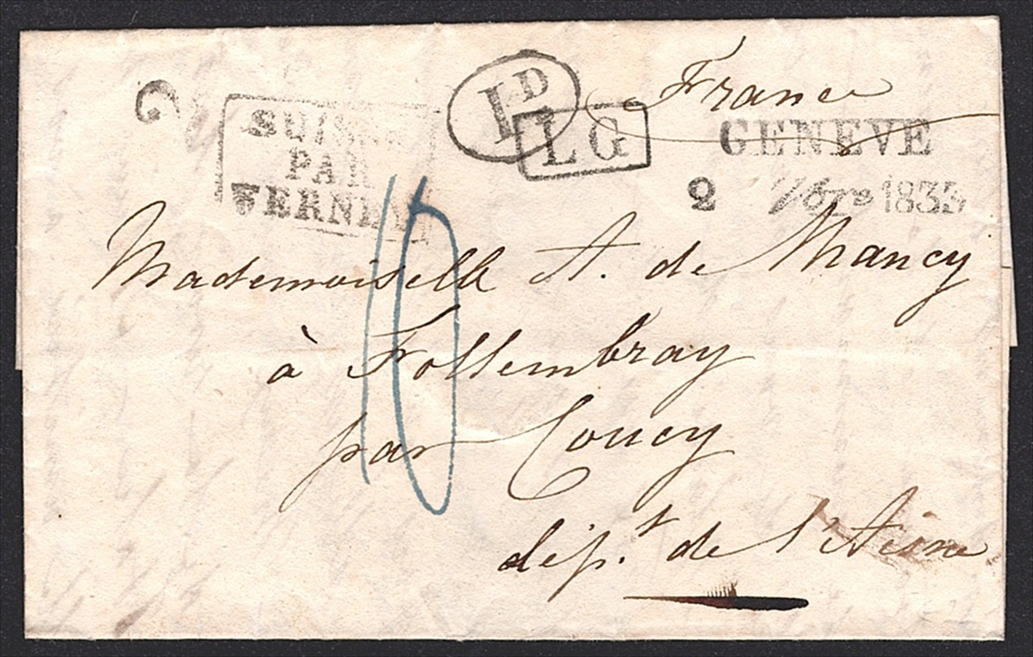 France
1D
LG
SUISSE
PAR
FERNEY
GENEVE
2 7bre 1835
10
Mademoiselle A. de Nancy
à Follembray
par Coucy
dép.t de l'Aisne